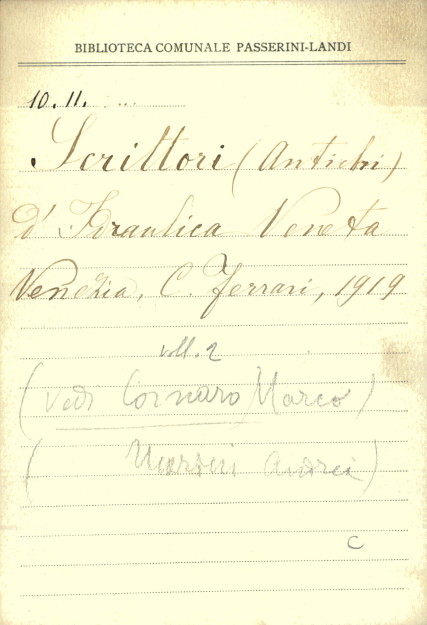 BIBLIOTECA COMUNALE PASSERINI-LANDI
10. 11.
Scrittori (Antichi)
d' Idraulica Veneta
Venezia, C. Ferrari, 1919
voll. 2
(Vedi Cornaro Marco)
( Andrei)
C